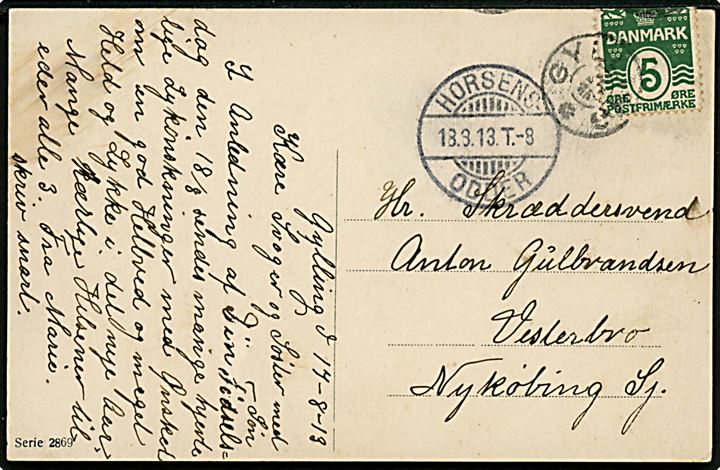 Gylling d 17-8-13
Kære Svoger og Søster med Søn
I Anledning af Din Fødsels-
dag den 18/8 sendes mange hjerte
lige Lykønskninger med Ønsket
om en god Helbred og megt
Held og Lykke i det nye Aar.
Mange kærlige Helsener til
eder alle 3. Fra Marie.
skriv snart.
Serie 2869
HORSENS
18.8.13. T.-8
ODDER
GY
DANMARK
5
ØRE ØRE
POSTFRIMÆRKE
Hr. Skræddersvend
Anton Gülbrandsen
Vesterbro
Nykøbing Sj.